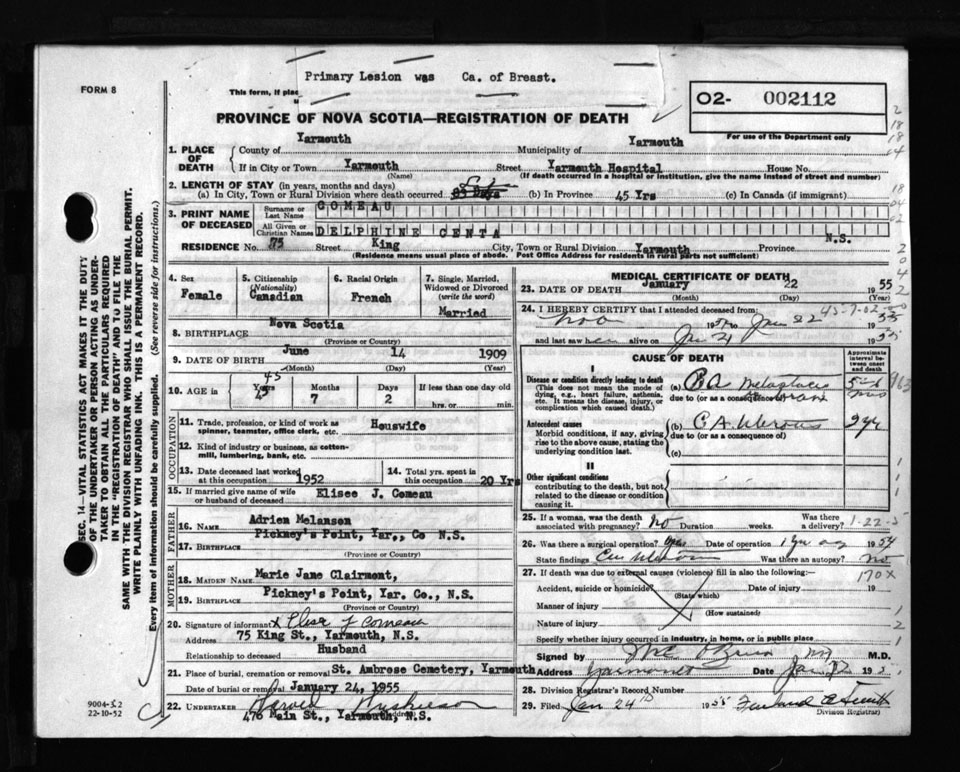 Primary Lesion was Ca. of Breast.
FORM 8
This form, if plac
02- 002112
For use of the Department only
PROVINCE OF NOVA SCOTIA—REGISTRATION OF DEATH
1. PLACE OF DEATH
County of Yarmouth Municipality of Yarmouth
If in City or Town Yarmouth Street Yarmouth Hospital House No.
(Name) (If death occurred in a hospital or institution, give the name instead of street and number)
2. LENGTH OF STAY (in years, months and days)
(a) In City, Town or Rural Division where death occurred (b) In Province 45 Yrs (c) In Canada (if immigrant)
3. PRINT NAME OF DECEASED
Surname or Last Name COMEAU
All Given or Christian Names DELPHINE CENTA
RESIDENCE No. 75 Street King City, Town or Rural Division Yarmouth Province N.S.
(Residence means usual place of abode. Post Office Address for residents in rural parts not sufficient)
4. Sex Female
5. Citizenship (Nationality) Canadian
6. Racial Origin French
7. Single, Married, Widowed or Divorced (write the word) Married
8. BIRTHPLACE Nova Scotia
(Province or Country)
9. DATE OF BIRTH June 14 1909
(Month) (Day) (Year)
10. AGE in Years 45 Months 7 Days 2 If less than one day old
hrs. or min.
OCCUPATION
11. Trade, profession, or kind of work as spinner, teamster, office clerk, etc. Houswife
12. Kind of industry or business, as cotton-mill, lumbering, bank, etc.
13. Date deceased last worked at this occupation 1952
14. Total yrs. spent in this occupation 20 Yrs
15. If married give name of wife or husband of deceased Elisee J. Comeau
FATHER
16. NAME Adrien Melanson
17. BIRTHPLACE Pickney's Point, Yar,, Co N.S.
(Province or Country)
MOTHER
18. MAIDEN NAME Marie Jane Clairmont,
19. BIRTHPLACE Pickney's Point, Yar. Co., N.S.
(Province or Country)
20. Signature of informant x Elise J Comeau
Address 75 King St., Yarmouth, N.S.
Relationship to deceased Husband
21. Place of burial, cremation or removal St. Ambrose Cemetery, Yarmouth
Date of burial or removal January 24, 1955
22. UNDERTAKER
476 Main St., Yarmouth, N.S.
(Address)
MEDICAL CERTIFICATE OF DEATH
23. DATE OF DEATH January 22 1955
(Month) (Day) (Year)
24. I HEREBY CERTIFY that I attended deceased from:
Nov 19 to Jan 22 19
and last saw her alive on Jan 21 19
CAUSE OF DEATH
Approximate interval between onset and death
I
Disease or condition directly leading to death (a) CA Metastases
(This does not mean the mode of dying, e.g., heart failure, asthenia, etc. It means the disease, injury, or complication which caused death.)
due to (or as a consequence of)
Antecedent causes (b) CA Uterous 2 yr
Morbid conditions, if any, giving rise to the above cause, stating the underlying condition last.
due to (or as a consequence of)
(c)
II
Other significant conditions
contributing to the death, but not related to the disease or condition causing it.
25. If a woman, was the death associated with pregnancy? No Duration weeks. Was there a delivery?
26. Was there a surgical operation? Yes Date of operation 1 Yr ago 1954
State findings Was there an autopsy? No
27. If death was due to external causes (violence) fill in also the following:
170X
Accident, suicide or homicide? Date of injury 19
(State which)
Manner of injury
(How sustained)
Nature of injury
Specify whether injury occurred in industry, in home, or in public place
Signed by M.D.
Address Yarmouth Date Jan 19
28. Division Registrar's Record Number
29. Filed Jan 24th 1955
(Division Registrar)
SEC. 14—VITAL STATISTICS ACT MAKES IT THE DUTY OF THE UNDERTAKER OR PERSON ACTING AS UNDERTAKER TO OBTAIN ALL THE PARTICULARS REQUIRED IN THE "REGISTRATION OF DEATH" AND TO FILE THE SAME WITH THE DIVISION REGISTRAR WHO SHALL ISSUE THE BURIAL PERMIT.
WRITE PLAINLY WITH UNFADING INK. THIS IS A PERMANENT RECORD.
Every item of information should be carefully supplied. (See reverse side for instructions.)
9004-S2
22-10-52